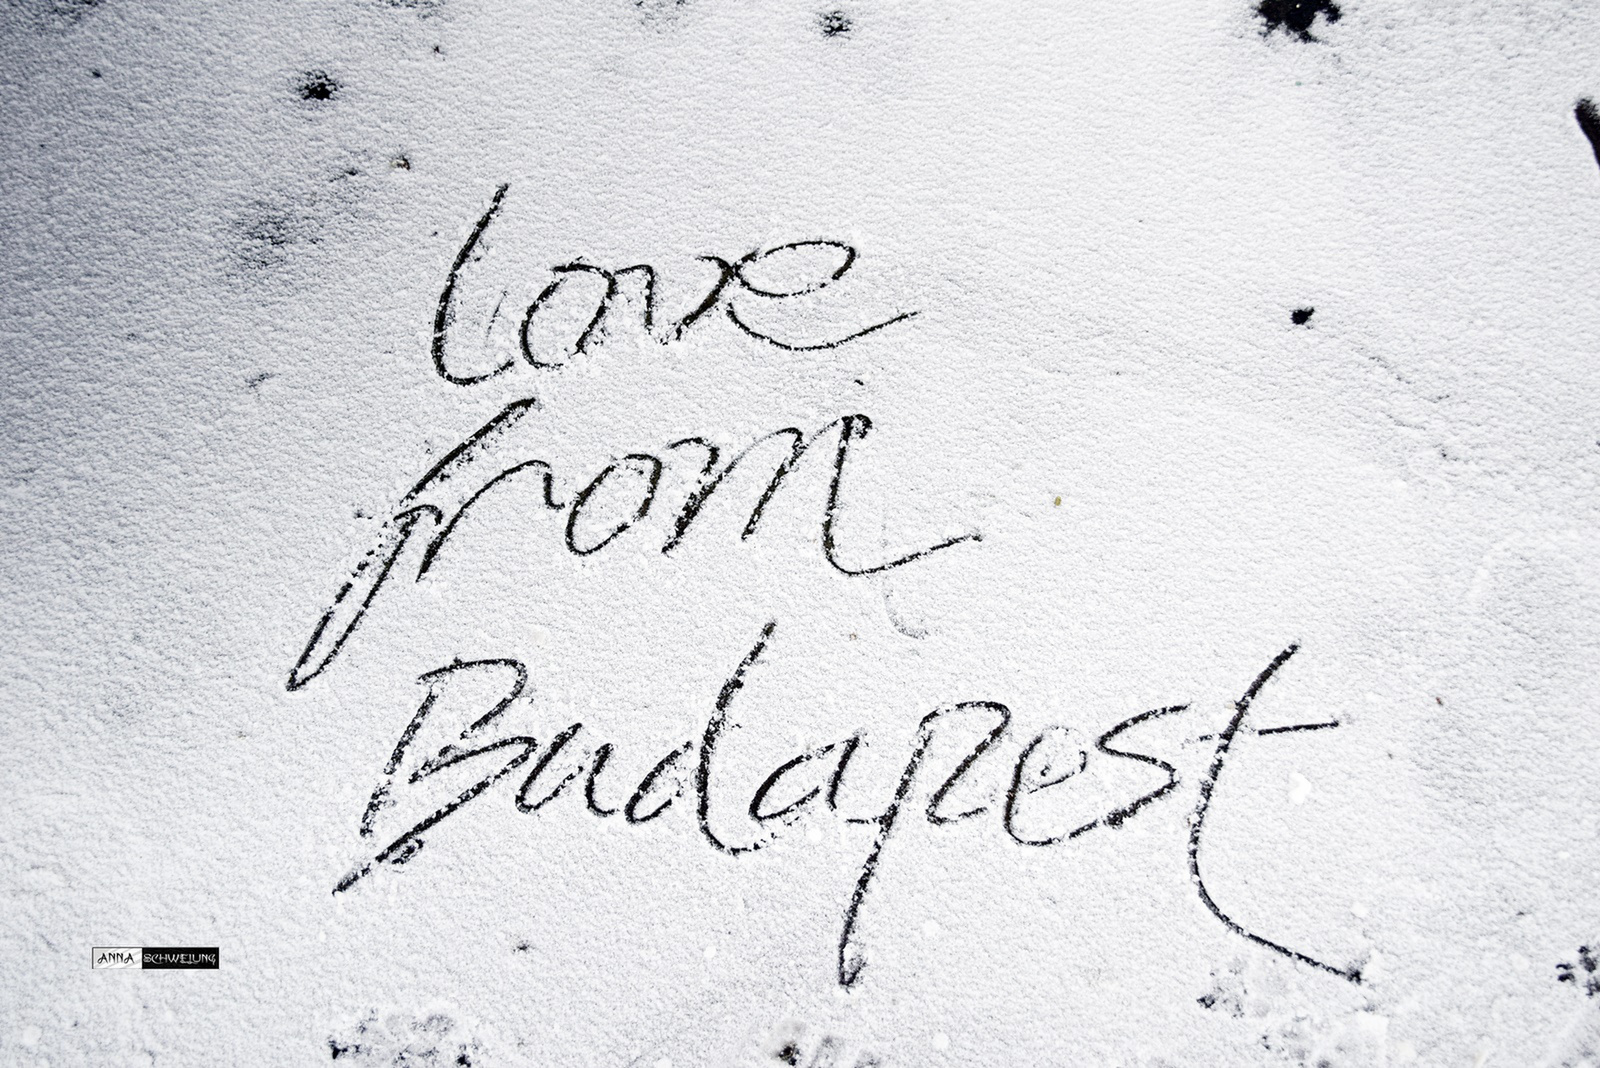 Love
from
Budapest
ANNA SCHWELUNG